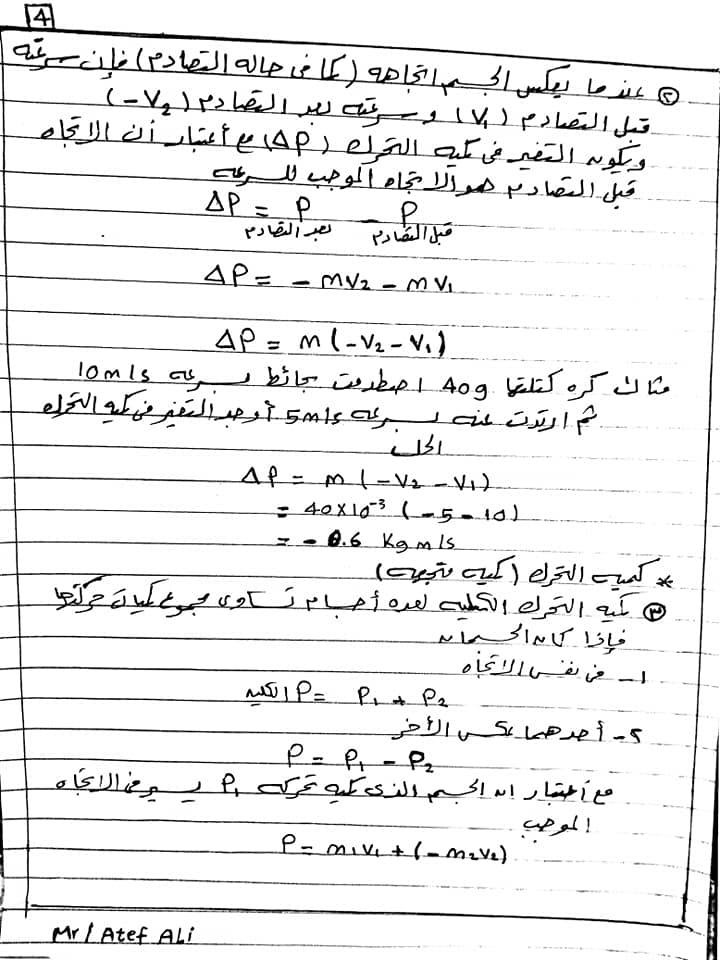 4
② عندما يعكس الجسم اتجاهه (كما فى حاله التصادم) فإن سرعته
قبل التصادم (V₁) وسرعته بعد التصادم (-V₂)
ويكون التغير فى كميه التحرك (ΔP) مع أعتبار أن الاتجاه
قبل التصادم هو الاتجاه الموجب للسرعه
ΔP = P بعد التصادم - P قبل التصادم
ΔP = - mv₂ - mv₁
ΔP = m(-v₂ - v₁)
مثال كره كتلتها 40g اصطدمت بحائط بسرعه 10m/s
ثم ارتدت عنه بسرعه 5m/s أوجد التغير فى كميه التحرك
الحل
ΔP = m(-v₂ - v₁)
= 40×10⁻³ (-5 - 10)
= - 0.6 Kgm/s
* كميه التحرك (كميه متجهه)
③ كميه التحرك الكليه لعده أجسام تساوى مجموع كميات حركتها
فإذا كان الجسمان
١- فى نفس الاتجاه
P الكليه = P₁ + P₂
٢- أحدهما عكس الأخر
P = P₁ - P₂
مع أعتبار ان الجسم الذى كميه تحركه P₁ يسير فى الاتجاه
الموجب
P = m₁v₁ + (-m₂v₂)
Mr/ Atef ALi